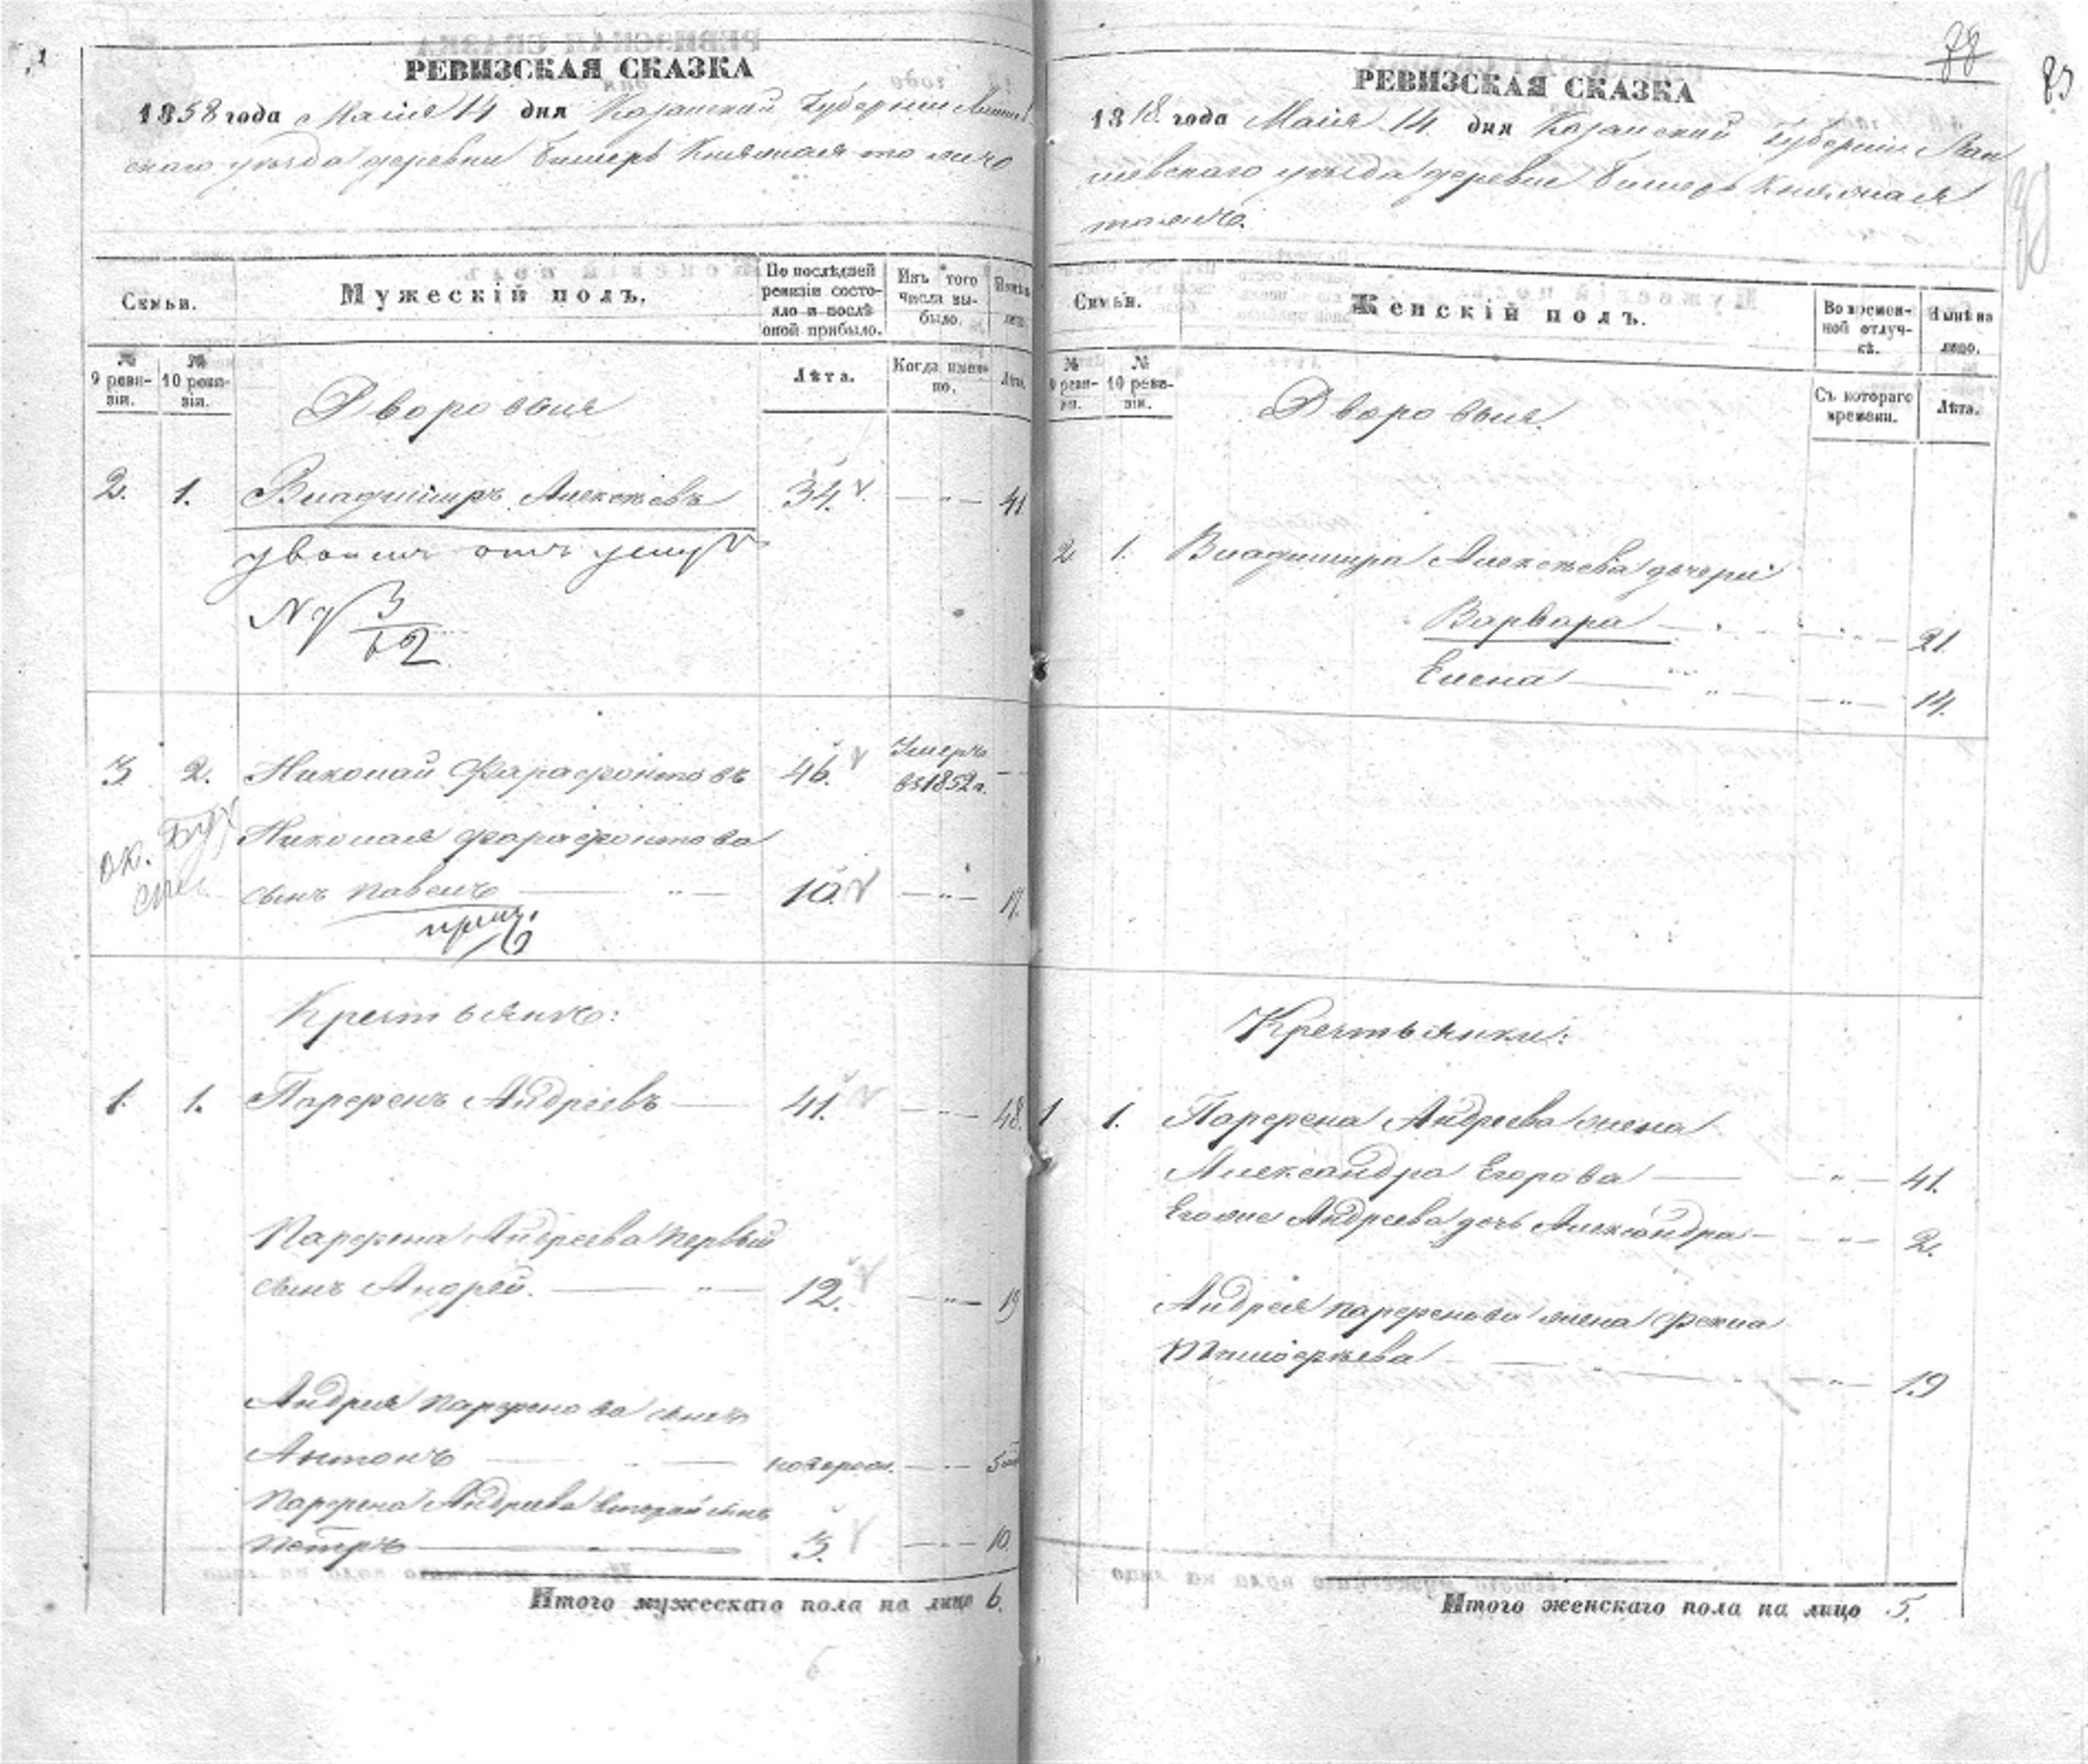 РЕВИЗСКАЯ СКАЗКА
1858 года Маія 14 дня Казанской Губерніи Лаишев
скаго уѣзда деревни Бимерь Княжная то жъ
Семьи.
Мужескій полъ.
По послѣдней ревизіи состояло и послѣ оной прибыло.
Изъ того числа выбыло.
Нынѣ на лицо.
№ 9 ревизіи.
№ 10 ревизіи.
Лѣта.
Когда именно.
Лѣта.
Дворовыя
2. 1. Владиміръ Алексѣевъ 34. — " — 41
уволенъ отъ
3/12
3 2. Николай Фарафонтовъ 46. Умеръ въ 1852 г. —
Николая Фарафонтова
сынъ Павелъ — " — 10. — " — 17.
ок.
Крестьянъ:
1. 1. Парфенъ Андреевъ — 41. — " — 48.
Парфена Андреева первый
сынъ Андрей. — " — 12. — " — 19
Андрея Парфенова сынъ
Антонъ — " — новорож. — " — 5
Парфена Андреева второй сынъ
Петръ — " — 3. — " — 10.
Итого мужескаго пола на лицо 6.
6
88
89
РЕВИЗСКАЯ СКАЗКА
1858 года Маія 14. дня Казанской Губерніи Лаи
шевскаго уѣзда деревне Бимерь Княжная
то жъ.
Семьи.
Женскій полъ.
Во временной отлучкѣ.
Нынѣ на лицо.
№ 9 ревизіи.
№ 10 ревизіи.
Съ котораго времени.
Лѣта.
Дворовыя.
2 1. Владиміра Алексѣева дочери
Варвара — " — 21.
Елена — " — 14.
Крестьянки:
1 1. Парфена Андреева жена
Александра Егорова — " — 41.
Егоже Андреева дочь Александра — " — 2.
Андрея Парфенова жена Фекла
— " — 19
Итого женскаго пола на лицо 5.